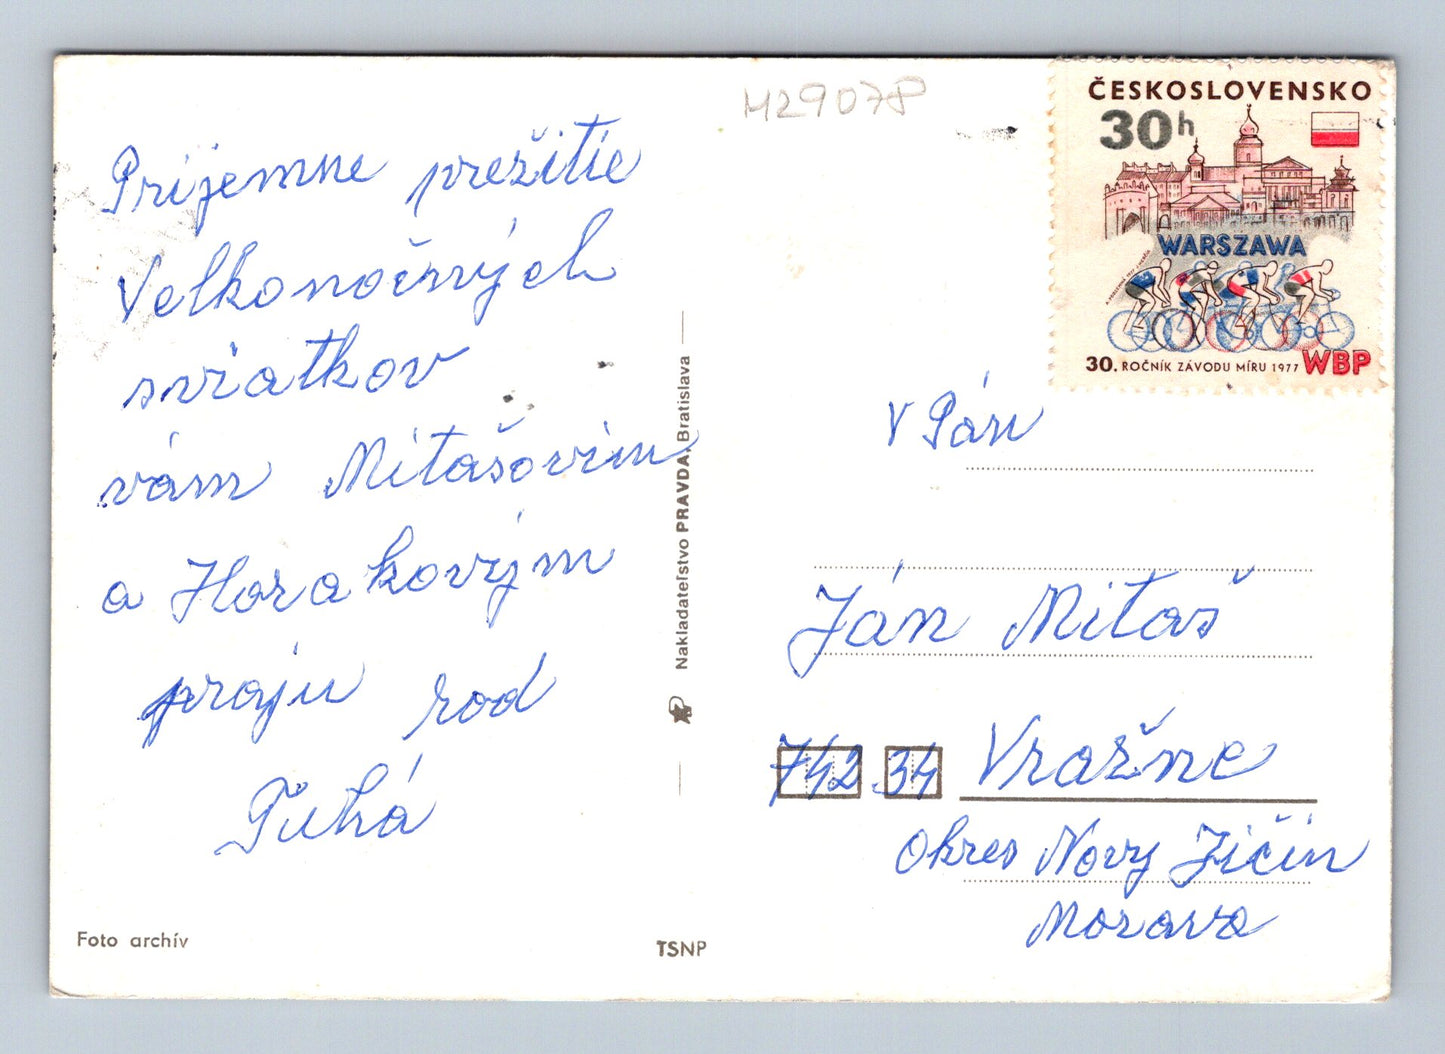 Príjemne prežitie
Velkonočných
sviatkov
vám Mitašovim
a Horakovým
praju rod
Tuhá
Foto archív
TSNP
Nakladateľstvo PRAVDA, Bratislava
H29078
ČESKOSLOVENSKO
30h
WARSZAWA
30. ROČNÍK ZÁVODU MÍRU 1977 WBP
V Pán
Ján Mitaš
742 34 Vražne
Okres Novy Jičín
Morava